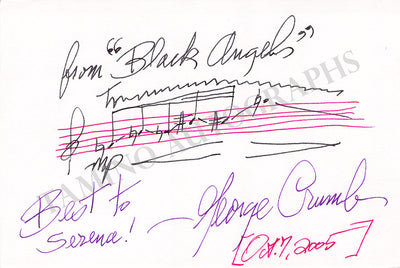 from "Black Angels"
mp
Best to
Serena!
—George Crumb
[Oct. 7, 2005]
TAMINO AUTOGRAPHS